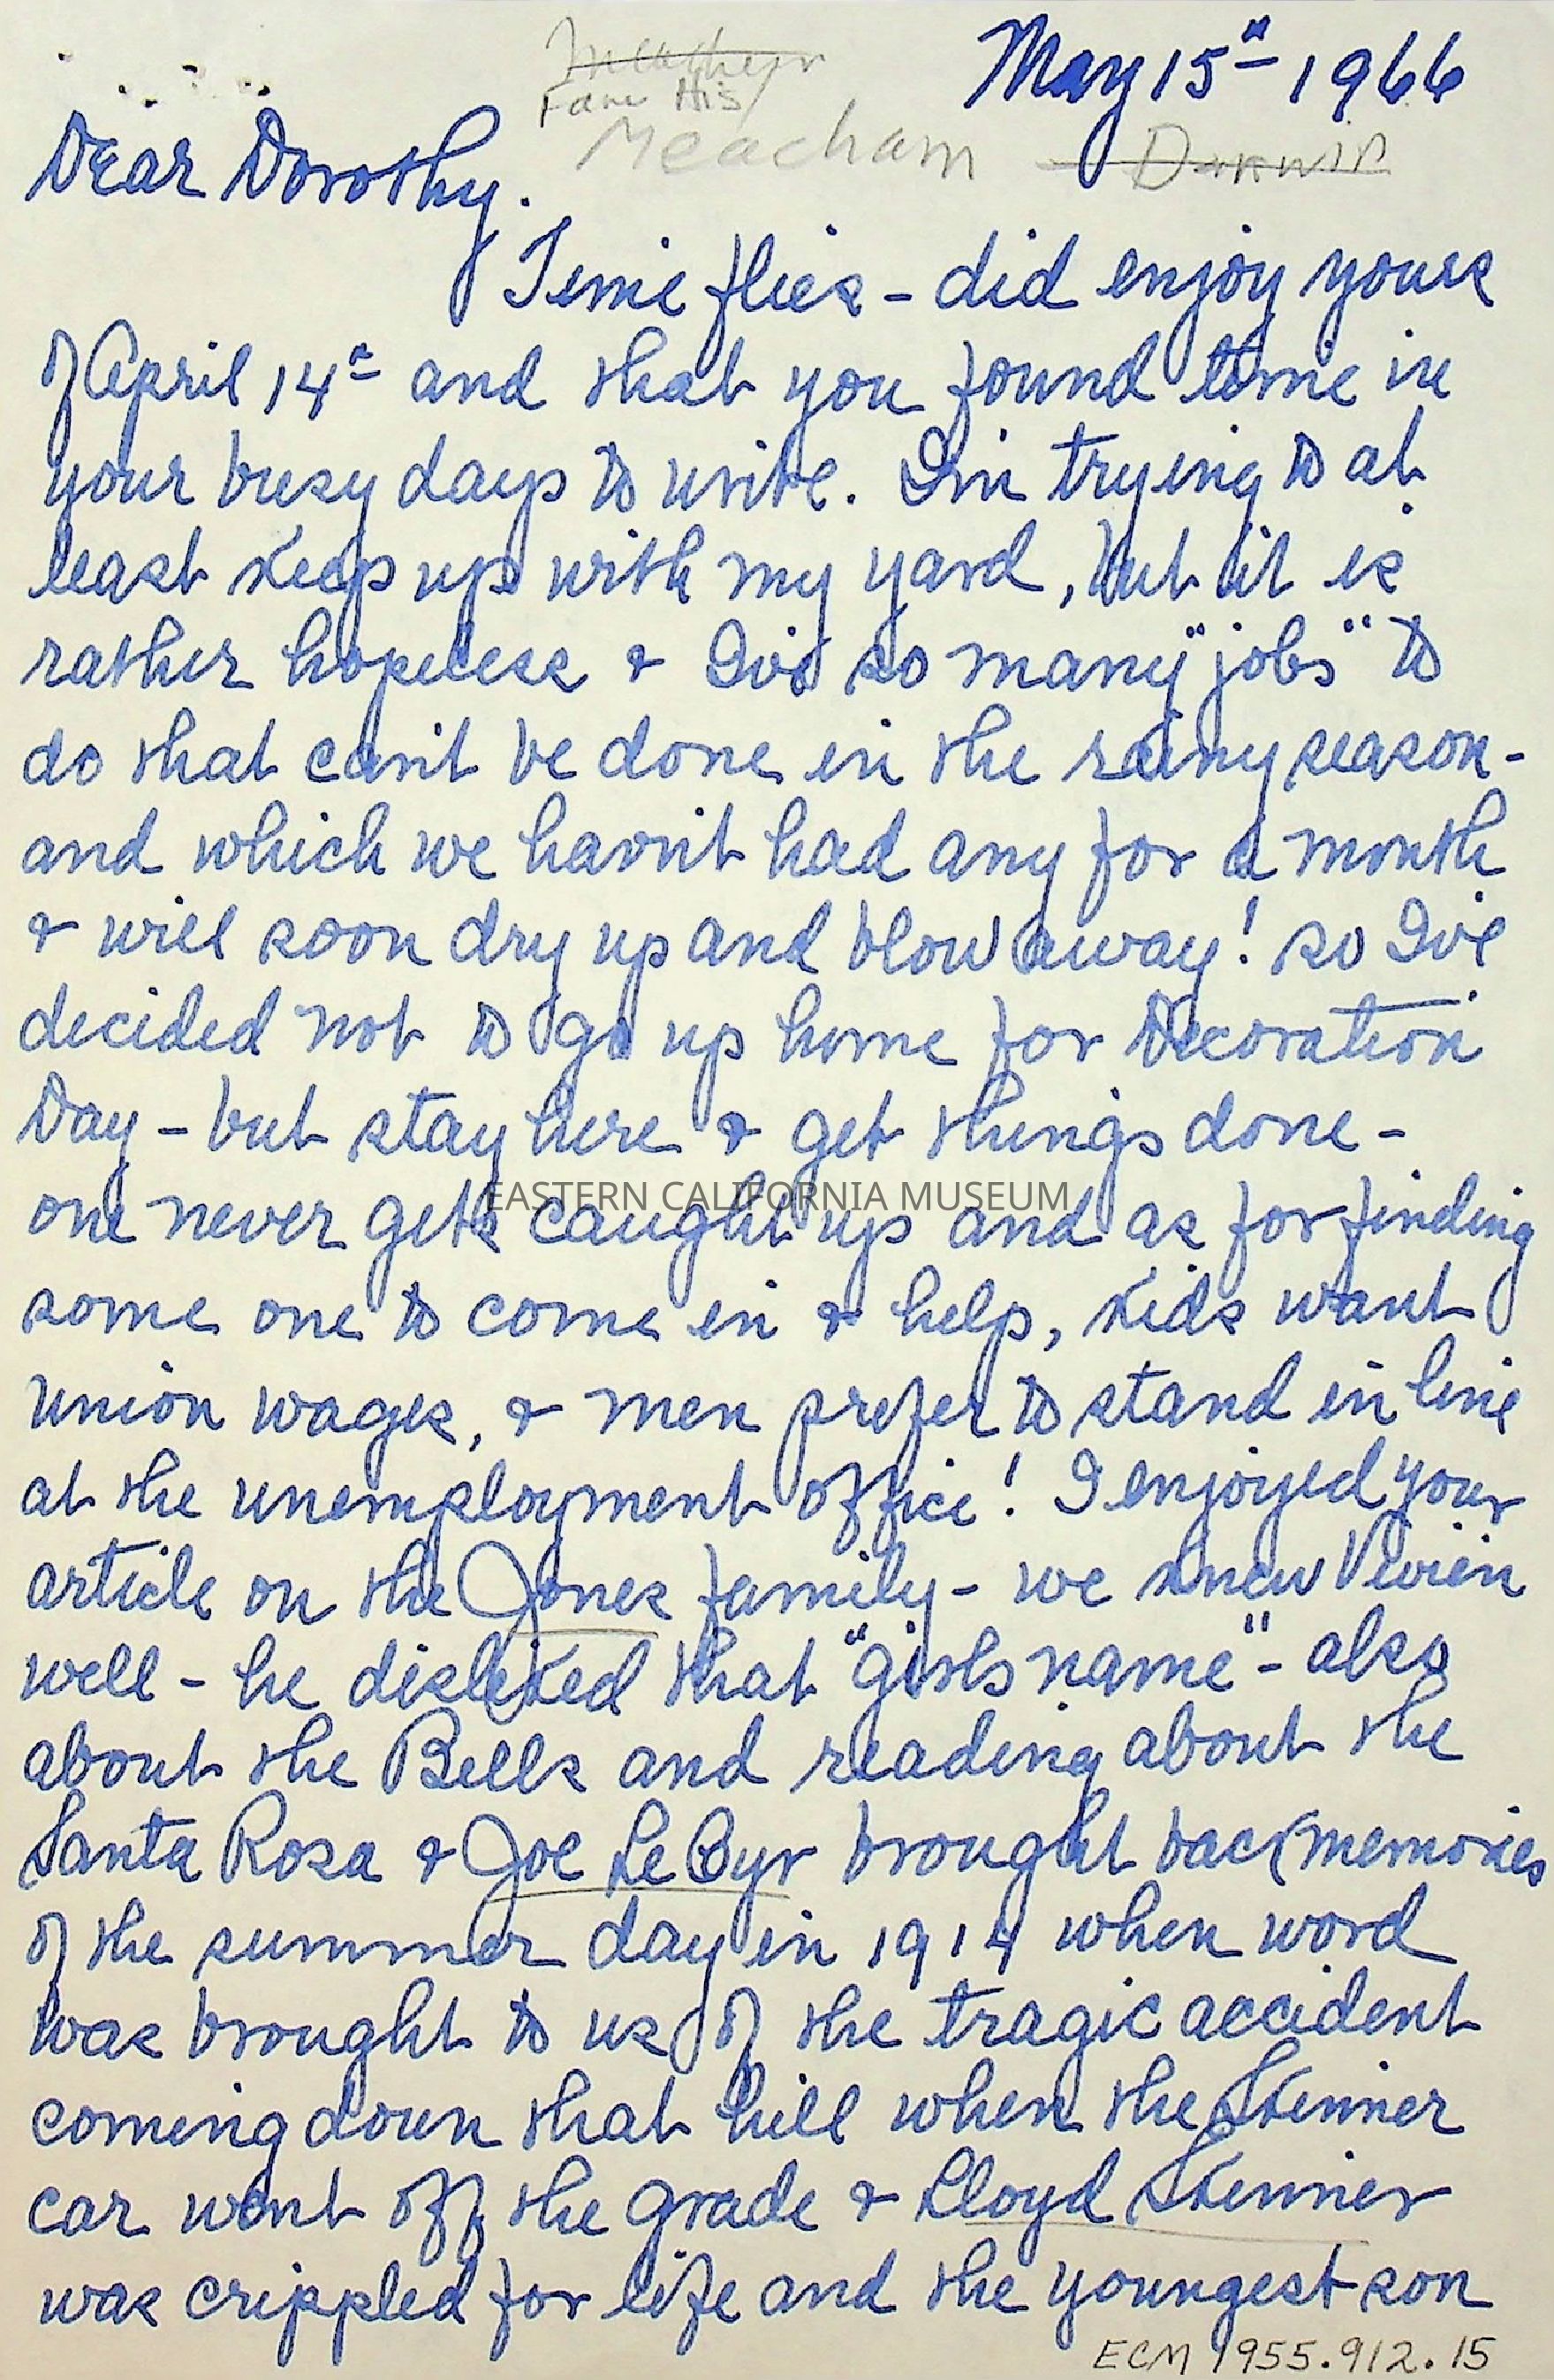 May 15th 1966
Meacham
Fam His
Meacham Darwin
Dear Dorothy.
Time flies - did enjoy yours
of April 14th and that you found time in
your busy days to write. I'm trying to at
least keep up with my yard, but it is
rather hopeless & I've so many "jobs" to
do that can't be done in the rainy season -
and which we havn't had any for a month
& will soon dry up and blow away! so I've
decided not to go up home for Decoration
Day - but stay here & get things done -
one never gets caught up and as for finding
EASTERN CALIFORNIA MUSEUM
some one to come in & help, kids want
union wages, & men prefer to stand in line
at the unemployment office! I enjoyed your
article on the Jones family - we knew Vivien
well - he disliked that "girls name" - also
about the Bells and reading about the
Santa Rosa & Joe Le Cyr brought back memories
of the summer day in 1914 when word
was brought to us of the tragic accident
coming down that hill when the Skinner
car went off the grade & Lloyd Skinner
was crippled for life and the youngest son
ECM 1955.912.15